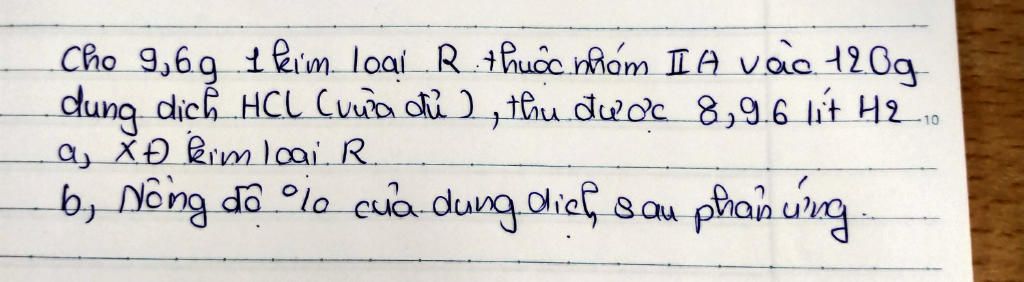 Cho 9,6g 1 kim loại R thuộc nhóm IIA vào 120g
dung dịch HCl (vừa đủ), thu được 8,96 lít H2 10
a, XĐ kim loại R
b, Nồng độ % của dung dịch sau phản ứng.